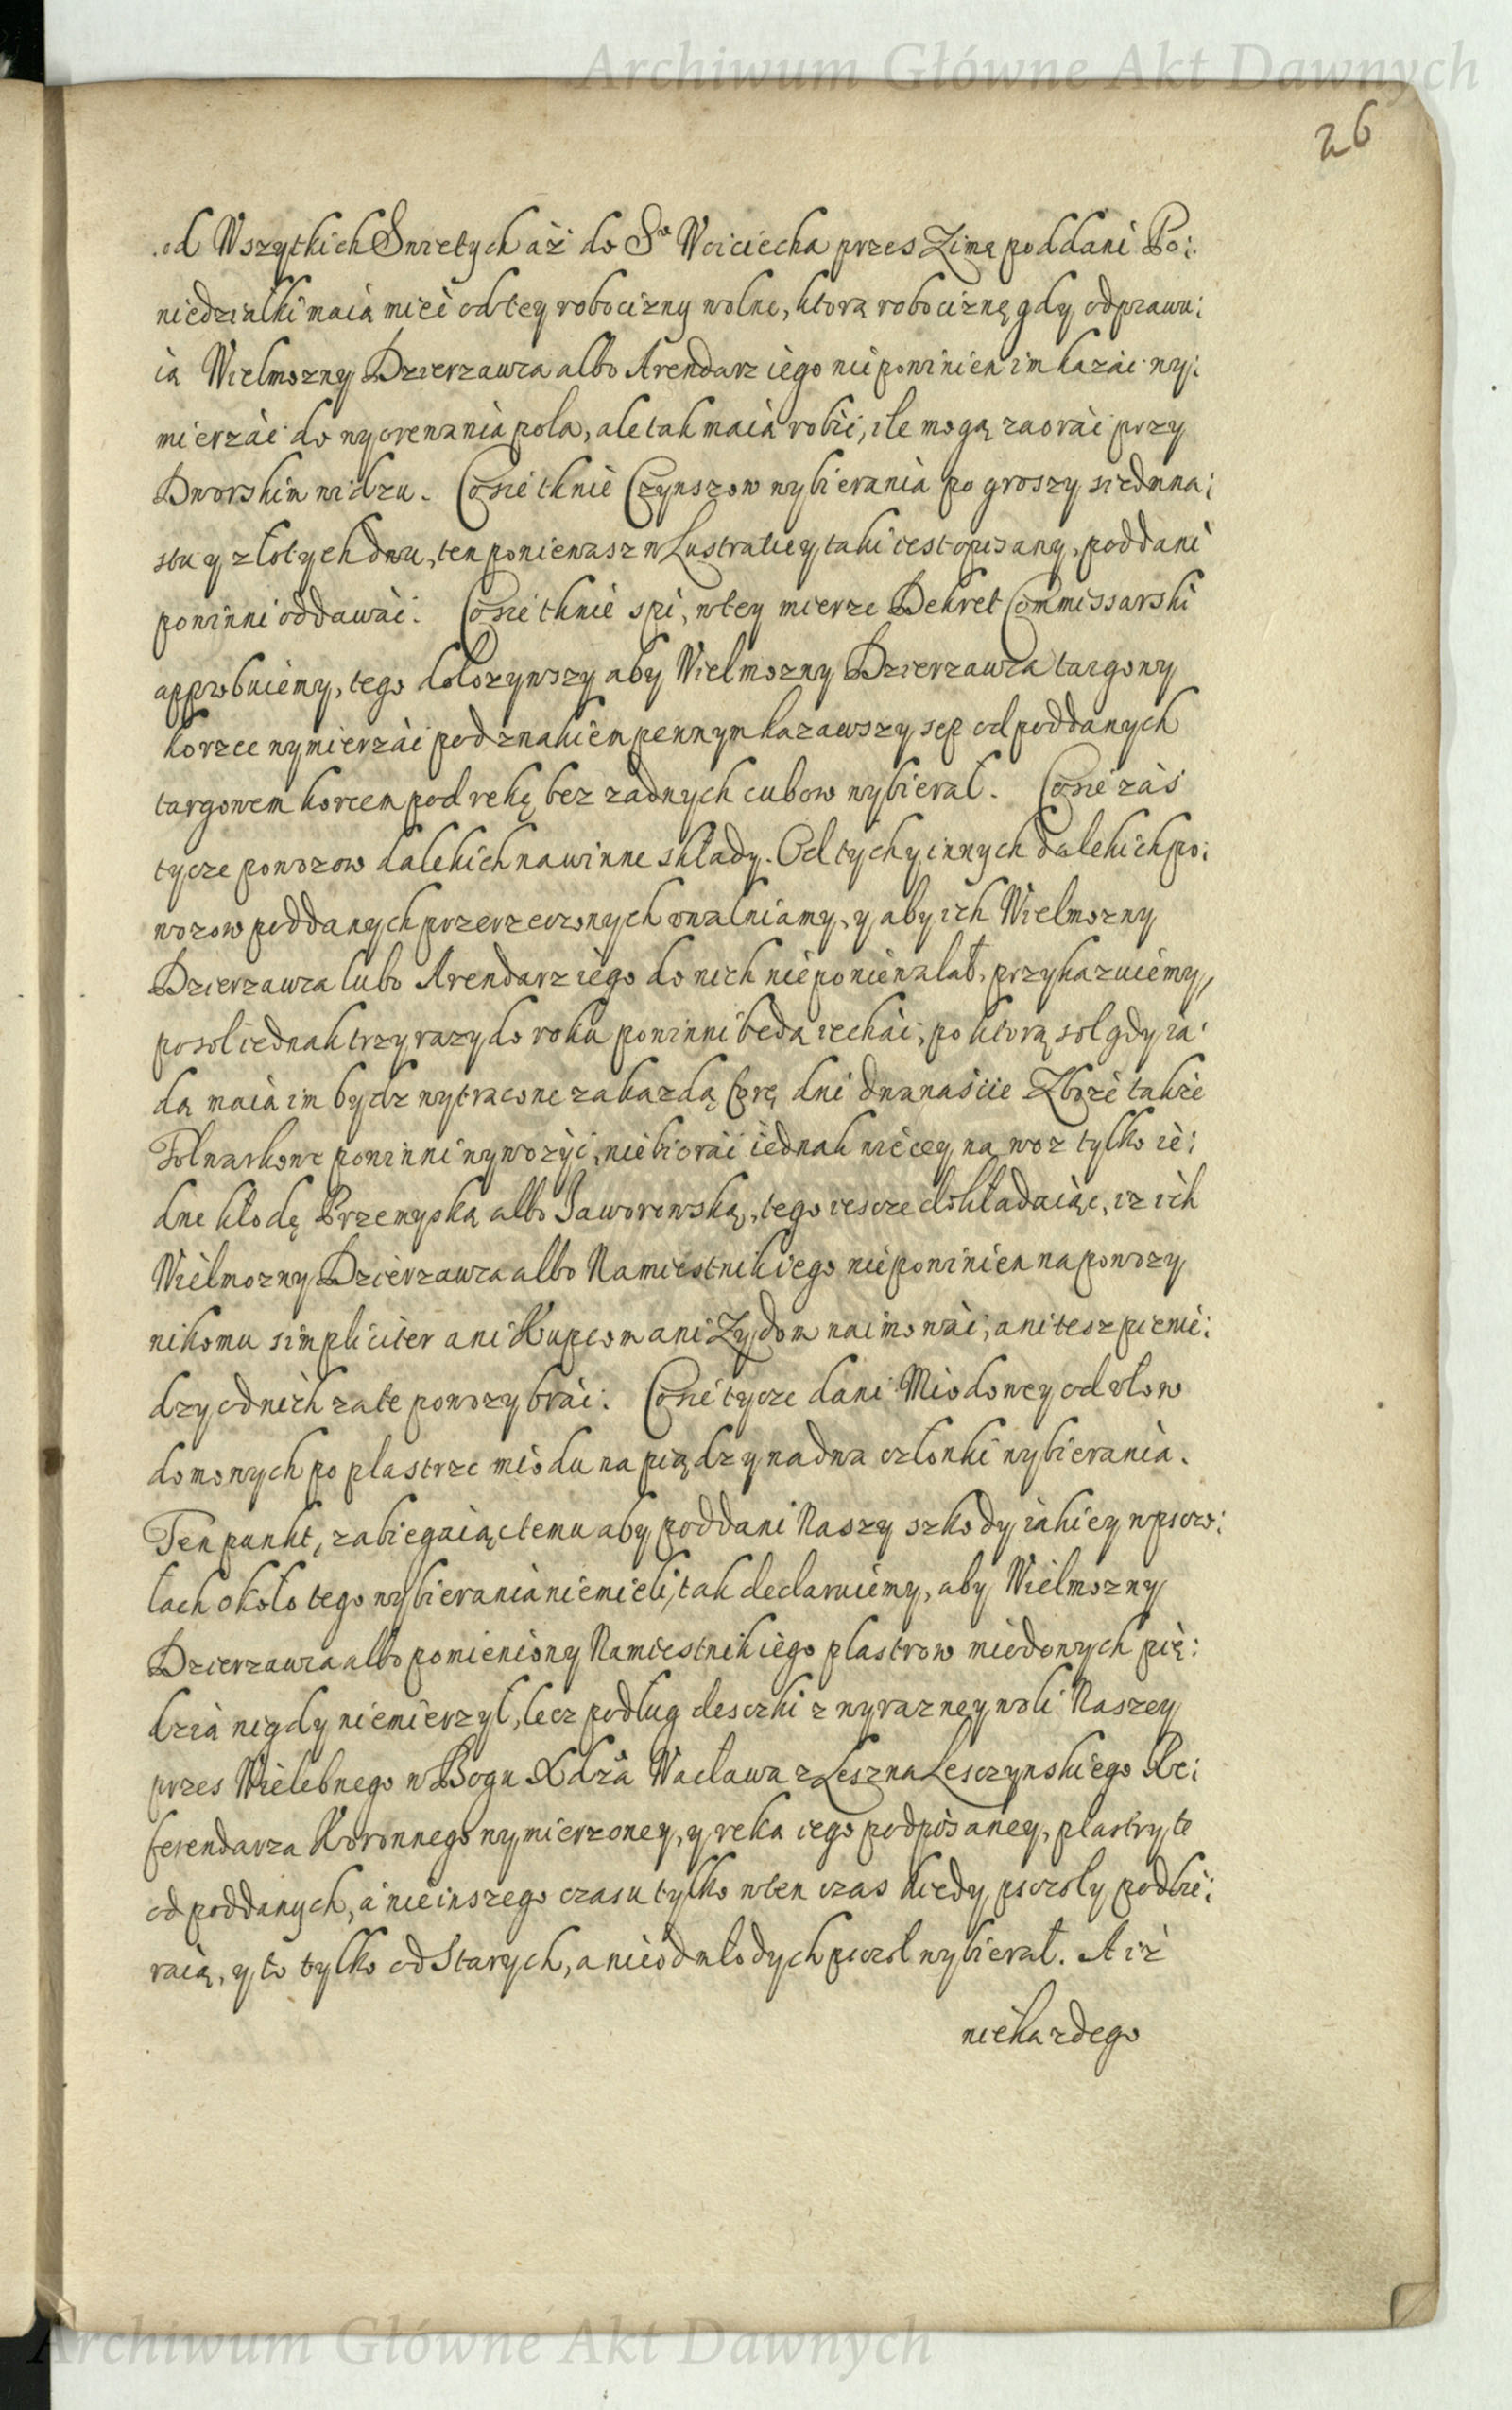 Archiwum Główne Akt Dawnych
26
od Wszytkich Swietych aż do Sº Woiciecha przes Zimę poddani Po:
niedzialki maią mieć od tey robocizny wolne, ktorą robociznę gdy odprawu:
ią Wielmozny Dzierzawca albo Arendarz iego nie powinien im kazać wy:
mierzać do wyorewania pola, ale tak maią robić, ile mogą zaorać przy
Dworskim widzu. Co sie tknie Czynszow wybierania po groszy siedmna:
stu y złotych dwu, ten poniewasz w Lustratiey taki iest opisany, poddani
powinni oddawać. Co sie tknie spi, w tey mierze Dekret Commissarski
approbuiemy, tego dolozywszy aby Wielmozny Dzierzawca targowy
korzec wymierzać pod znakiem pewnym kazawszy sep od poddanych
targowem korcem pod rekę bez zadnych cubow wybieral. Co sie zaś
tycze powozow dalekich na winne składy. Od tych y innych dalekich po:
wozow poddanych przerzeczonych uwalniamy, y aby ich Wielmozny
Dzierzawca lubo Arendarz iego do nich nie poniewalał, przykazuiemy,
po sol iednak trzy razy do roku powinni bedą iechać, po ktorą sol gdy ia:
dą maią im bydz wytracone za kazdą forę dni dwanaście Zboże także
Folwarkowe powinni wywozyć, nie biorąc iednak więcey na woz tylko ie:
dne kłodę Przemyską albo Jaworowską, tego iescze dokładaiąc, iz ich
Wielmozny Dzierzawca albo Namiestnik iego nie powinien na powozy
nikomu simpliciter ani Kupcom ani Zydom naimować, ani tesz pienię:
dzy od nich za te powozy brać. Co sie tycze dani Miodowey od ułow
domowych po plastrze miodu na piądz y na dwa członki wybierania.
Ten punkt, zabiegaiąc temu aby poddani Naszy szkody iakiey w psczo:
łach około tego wybierania nie mieli, tak declaruiemy, aby Wielmozny
Dzierzawca albo pomieniony Namiestnik iego plastrow miodowych pię:
dzią nigdy nie mierzył, lecz podług desczki z wyrazney woli Naszey
przes Wielebnego w Bogu Xdza Wacława z Leszna Lesczynskiego Re:
ferendarza Koronnego wymierzoney, y ręka iego podpisaney, plastry te
od poddanych, a nie inszego czasu tylko w ten czas kiedy psczoly podbie:
raią, y to tylko od Starych, a nie od młodych psczoł wybierał. A iż
nie kazdego
Archiwum Główne Akt Dawnych